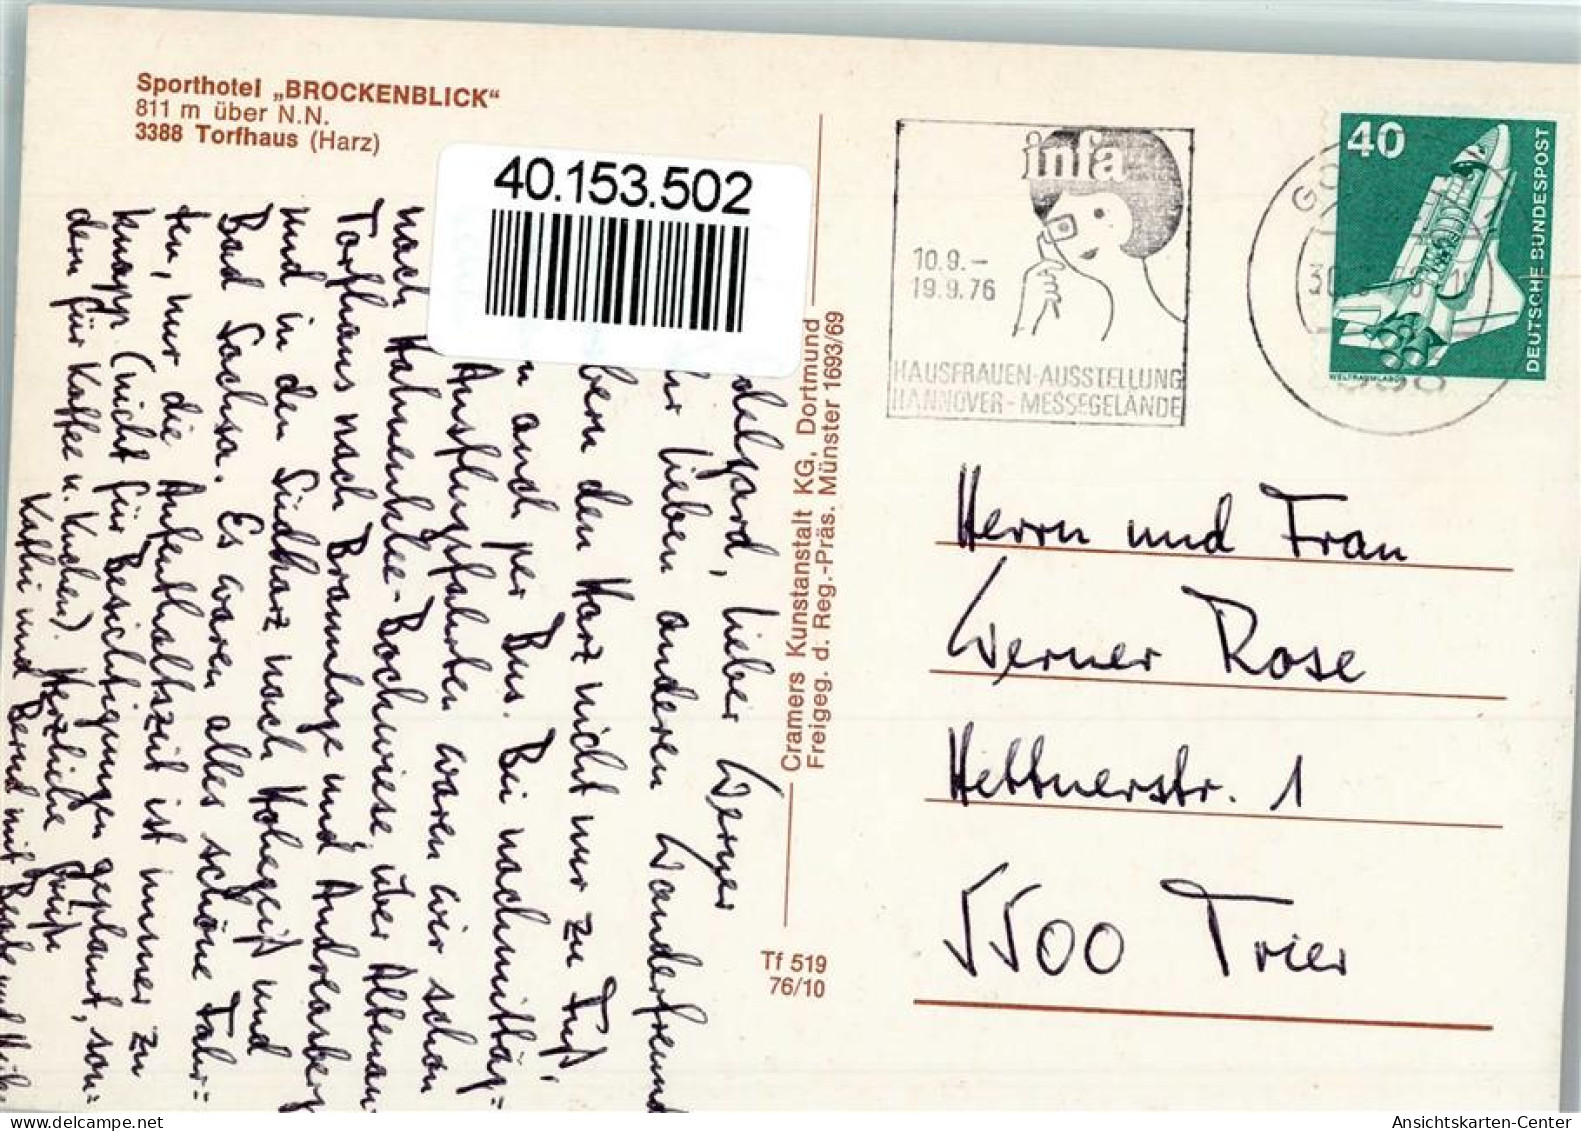 Sporthotel „BROCKENBLICK“
811 m über N.N.
3388 Torfhaus (Harz)
40.153.502
delgard, lieber Werner
lieben anderen Wanderfreund
den Harz nicht nur zu Fuß,
auch per Bus. Bei nachmittäg=
Ausflugsfahrten waren wir schon
nach Hahnenklee-Bockswiese, über Altenau-
Torfhaus nach Braunlage und Andreasberg
und in den Südharz nach Hohegeiß und
Bad Sachsa. Es waren alles schöne Fahr=
ten, nur die Aufenthaltszeit ist immer zu
knapp (nicht für Besichtigungen geplant, son=
dern für Kaffee u. Kuchen). Herzliche Grüße
Kathi und Bernd mit Beate und
Cramers Kunstanstalt KG, Dortmund
Freigeg. d. Reg.-Präs. Münster 1693/69
Tf 519
76/10
infa
10.9.–
19.9.76
HAUSFRAUEN-AUSSTELLUNG
HANNOVER-MESSEGELÄNDE
40
DEUTSCHE BUNDESPOST
WELTRAUMLABOR
Herrn und Frau
Werner Rose
Hettnerstr. 1
5500 Trier
Ansichtskarten-Center